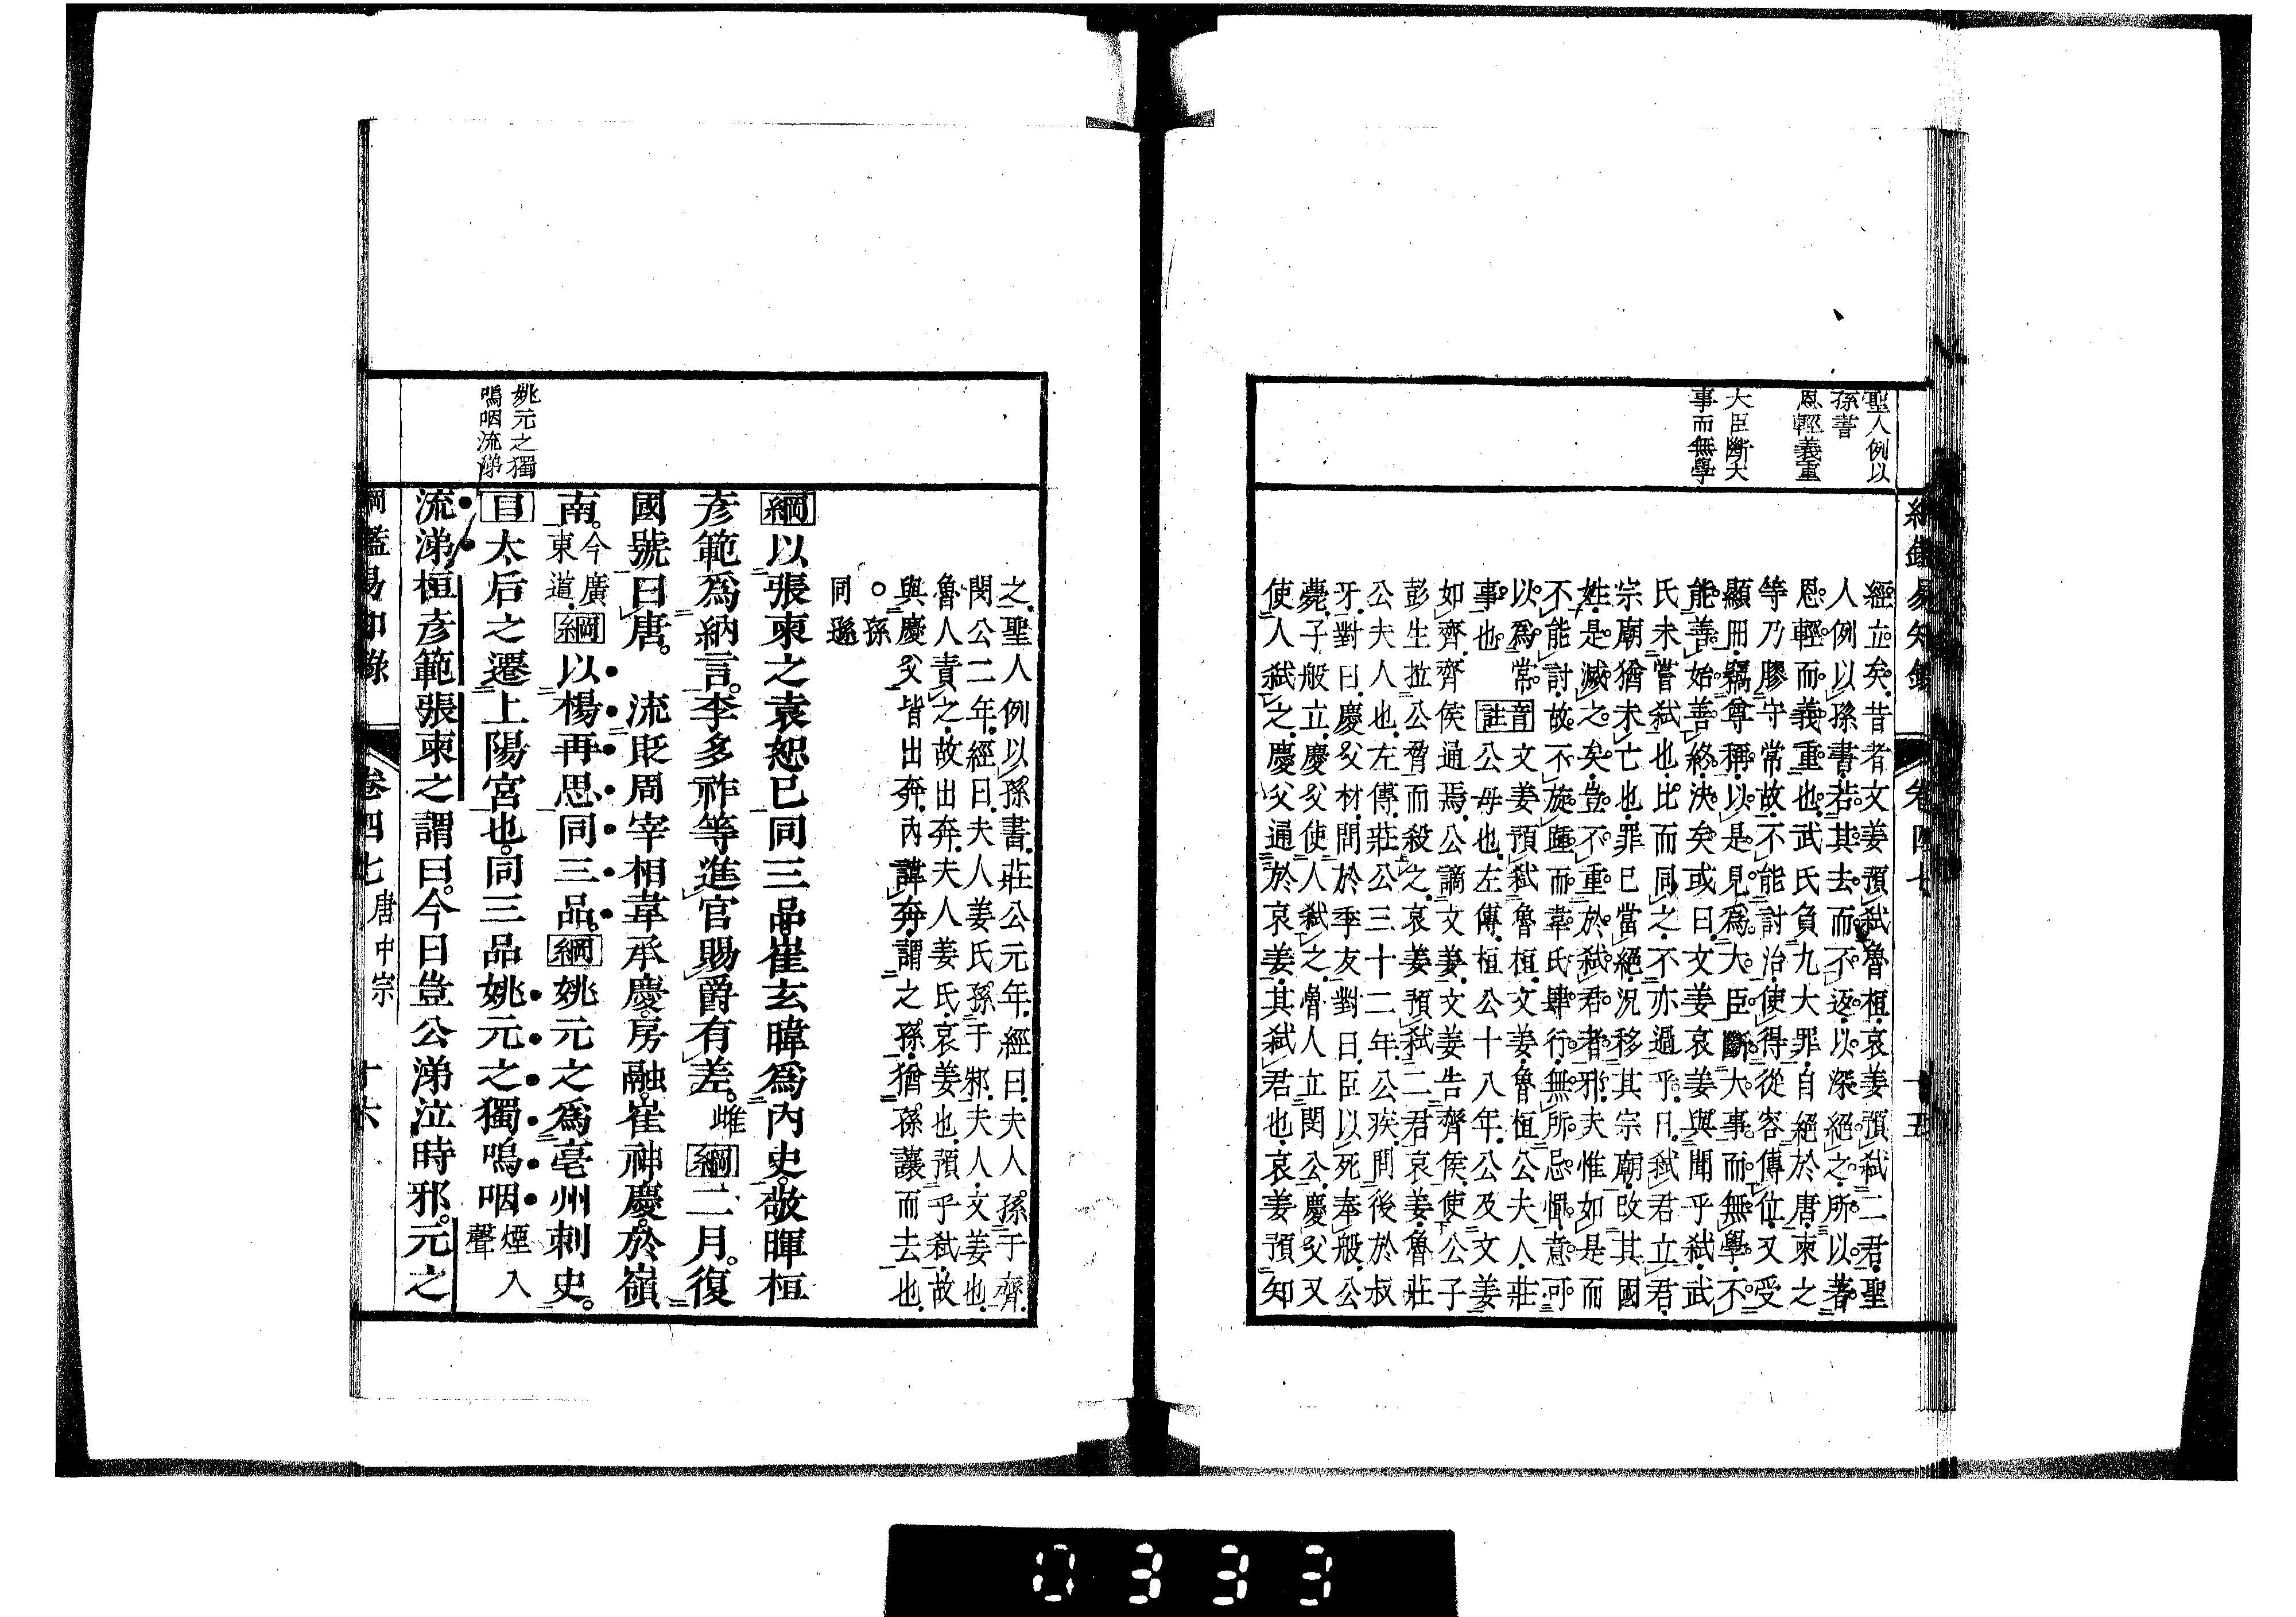 聖人例以
孫書
恩輕義重
大臣斷大
事而無學
經立矣昔者文姜預弑魯桓哀姜預弑二君聖
人例以孫書若其去而不返以深絕之所以著
恩輕而義重也武氏負九大罪自絕於唐柬之
等乃膠守常故不能討治使得從容傳位又受
顯冊竊尊稱以是見爲大臣斷大事而無學不
能善始善終決矣或曰文姜哀姜與聞乎弑武
氏未嘗弑也比而同之不亦過乎曰弑君立君
宗廟猶未亡也罪已當絕況移其宗廟改其國
姓是滅之矣豈不重於弑君者邪夫惟如是而
不能討故不旋踵而韋氏肆行無所忌憚意可
以爲常音文姜預弑魯桓文姜魯桓公夫人莊
事也註公母也左傳桓公十八年公及文姜
如齊齊侯通焉公謫文姜文姜告齊侯使公子
彭生拉公脅而殺之哀姜預弑二君哀姜魯莊
公夫人也左傳莊公三十二年公疾問後於叔
牙對曰慶父材問於季友對曰臣以死奉般公
薨子般立慶父使人弑之魯人立閔公慶父又
使人弑之慶父通於哀姜其弑君也哀姜預知
之聖人例以孫書莊公元年經曰夫人孫于齊
閔公二年經曰夫人姜氏孫于邾夫人文姜也
魯人責之故出奔夫人姜氏哀姜也預乎弑故
與慶父皆出奔內諱奔謂之孫猶孫讓而去也
○孫
同遜
綱以張柬之袁恕已同三品崔玄暐爲內史敬暉桓
彥範爲納言李多祚等進官賜爵有差雌綱二月復
國號曰唐 流貶周宰相韋承慶房融崔神慶於嶺
南今廣
東道綱以楊再思同三品綱姚元之爲亳州刺史
姚元之獨
嗚咽流涕
目太后之遷上陽宮也同三品姚元之獨嗚咽煙入
聲
流涕桓彥範張柬之謂曰今日豈公涕泣時邪元之
卷四七 唐中宗 十六
0333